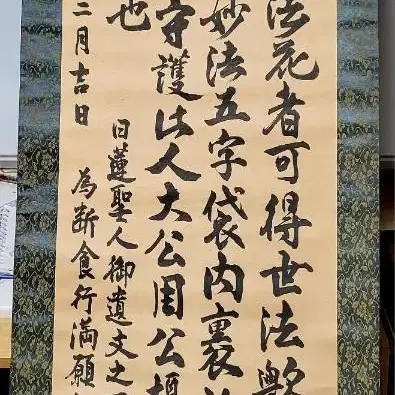 法花者可得世法歟
妙法五字袋内裹
守護此人大公周公摂
也
二月吉日
日蓮聖人御遺文之
為断食行満願